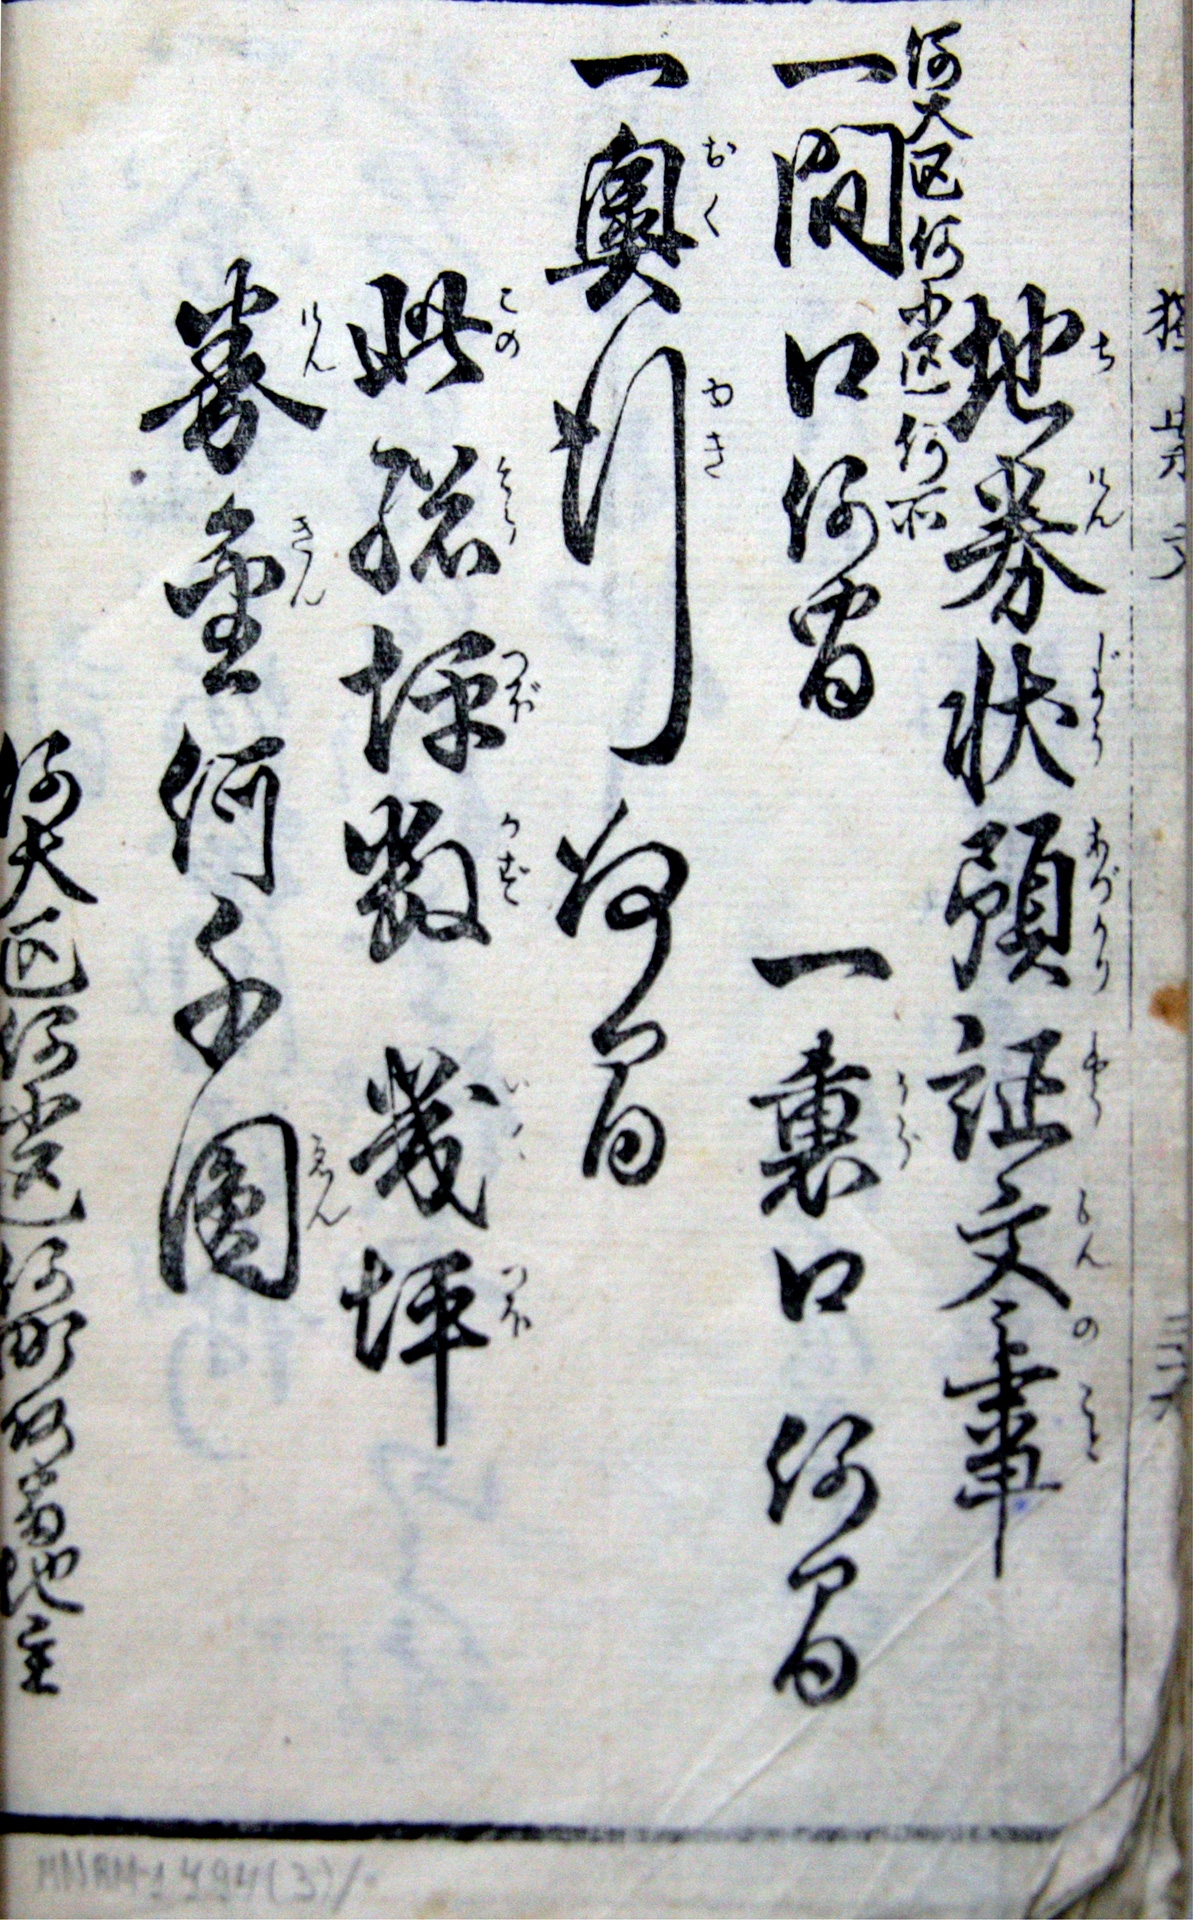 地券状預証文之事
ち けん じよう あづかり もん の こと
何大区何小区何町
一間口何間 一裏口何間
うら
一奥行何間
おく ゆき
此総坪数幾坪
この そう つぼ かず いく つぼ
券金何千圓
けん きん ゑん
何大区何小区何町何番地主
MNAM-1494(3)/